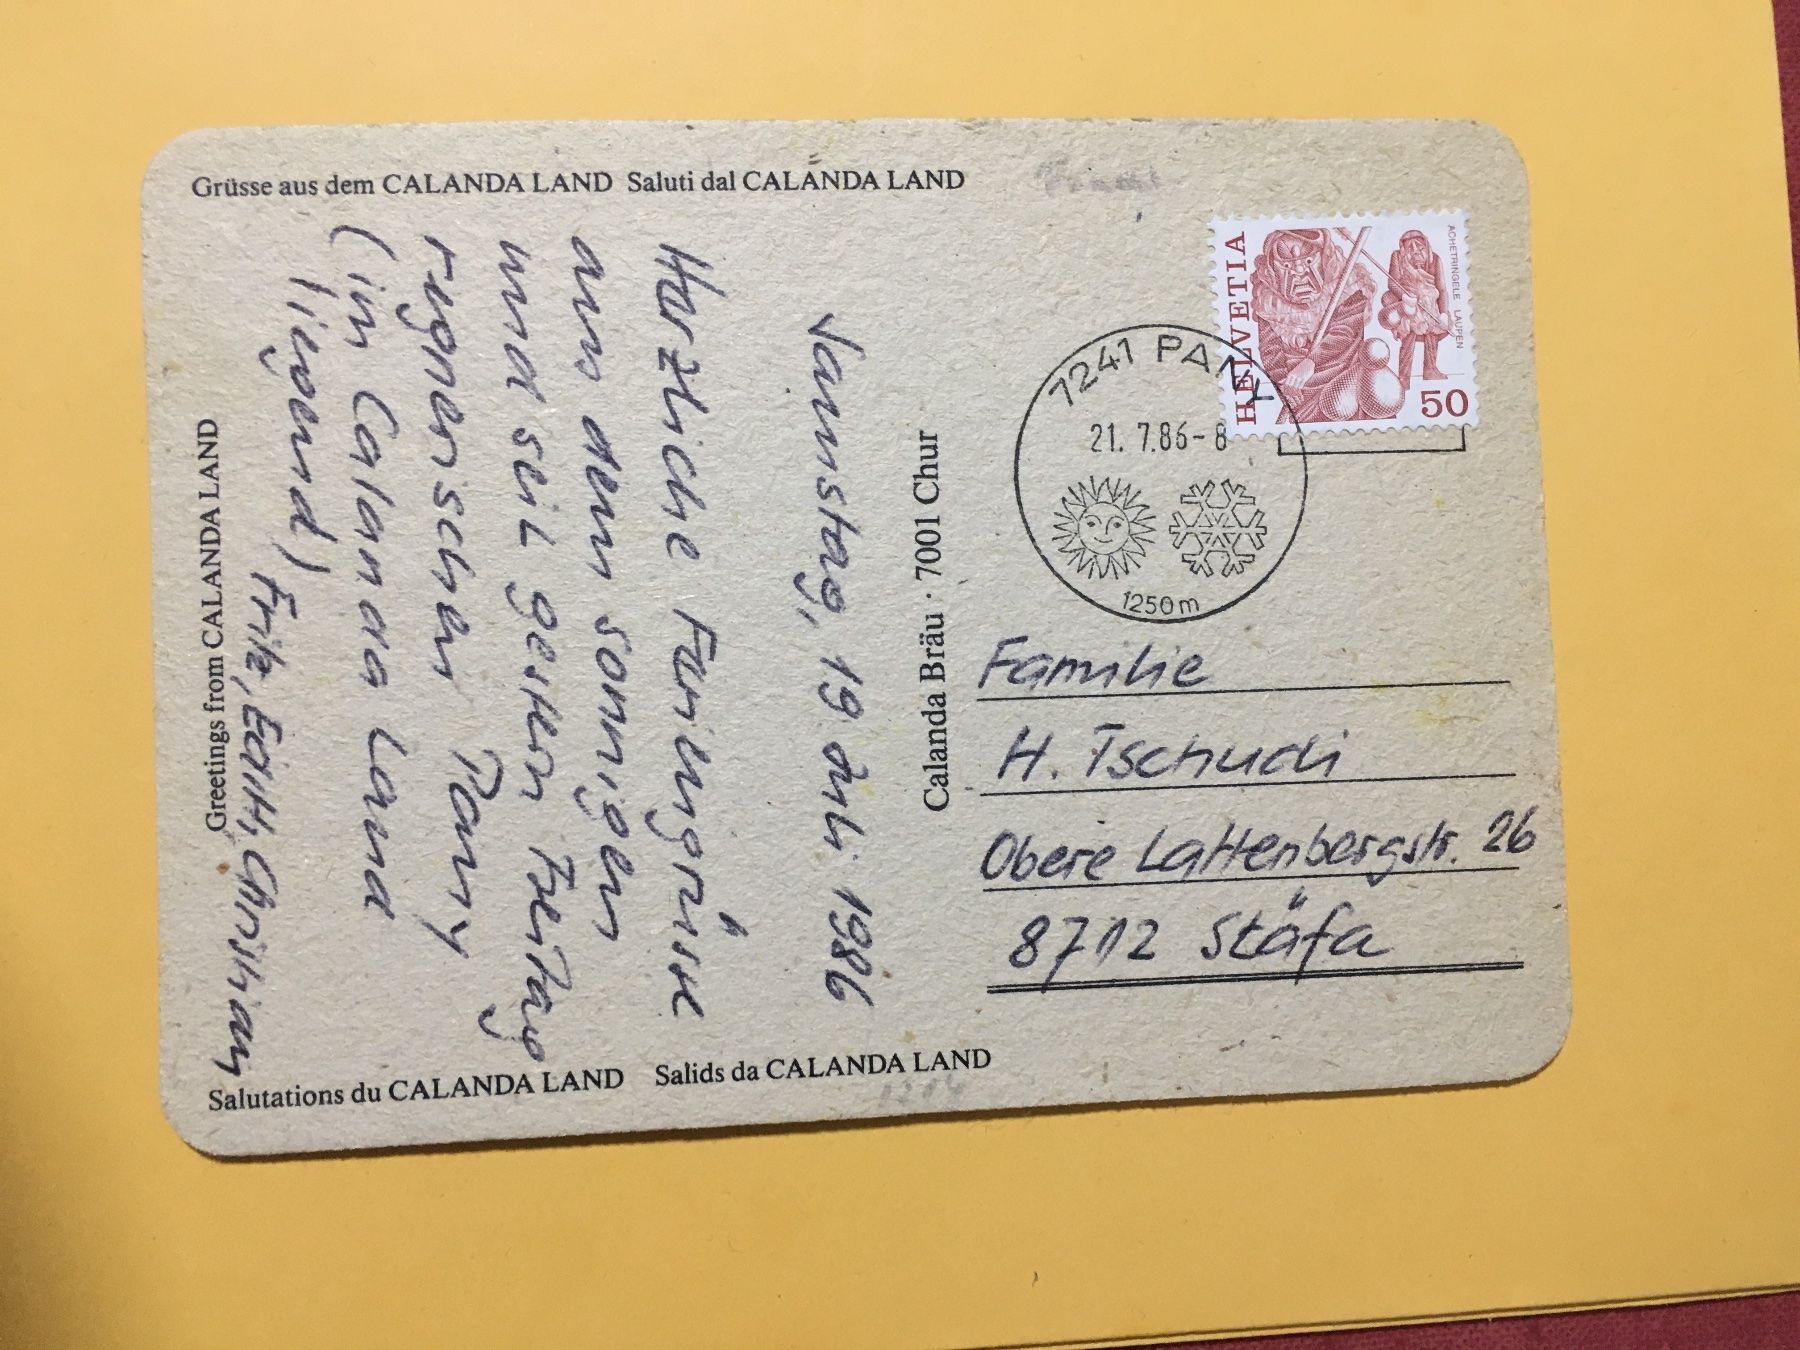 Grüsse aus dem CALANDA LAND Saluti dal CALANDA LAND
Greetings from CALANDA LAND
Salutations du CALANDA LAND Salids da CALANDA LAND
Calanda Bräu · 7001 Chur
Samstag, 19 Juli 1986
Herzliche Feriengrüsse
aus dem sonnigen
und seit gestern Freitag
regnerischen Pany
(im Calanda Land
liegend)
Fritz, Edith, Christian
HELVETIA
ACHETRINGELE LAUPEN
50
7241 PANY
21. 7.86-8
1250m
Familie
H. Tschudi
Obere Lattenbergstr. 26
8712 Stäfa